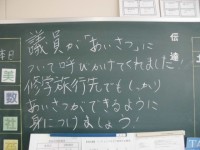 伝達
議員が「あいさつ」に
ついて呼びかけてくれました!
修学旅行先でもしっかり
あいさつができるように
身につけましょう!
本日
美
数